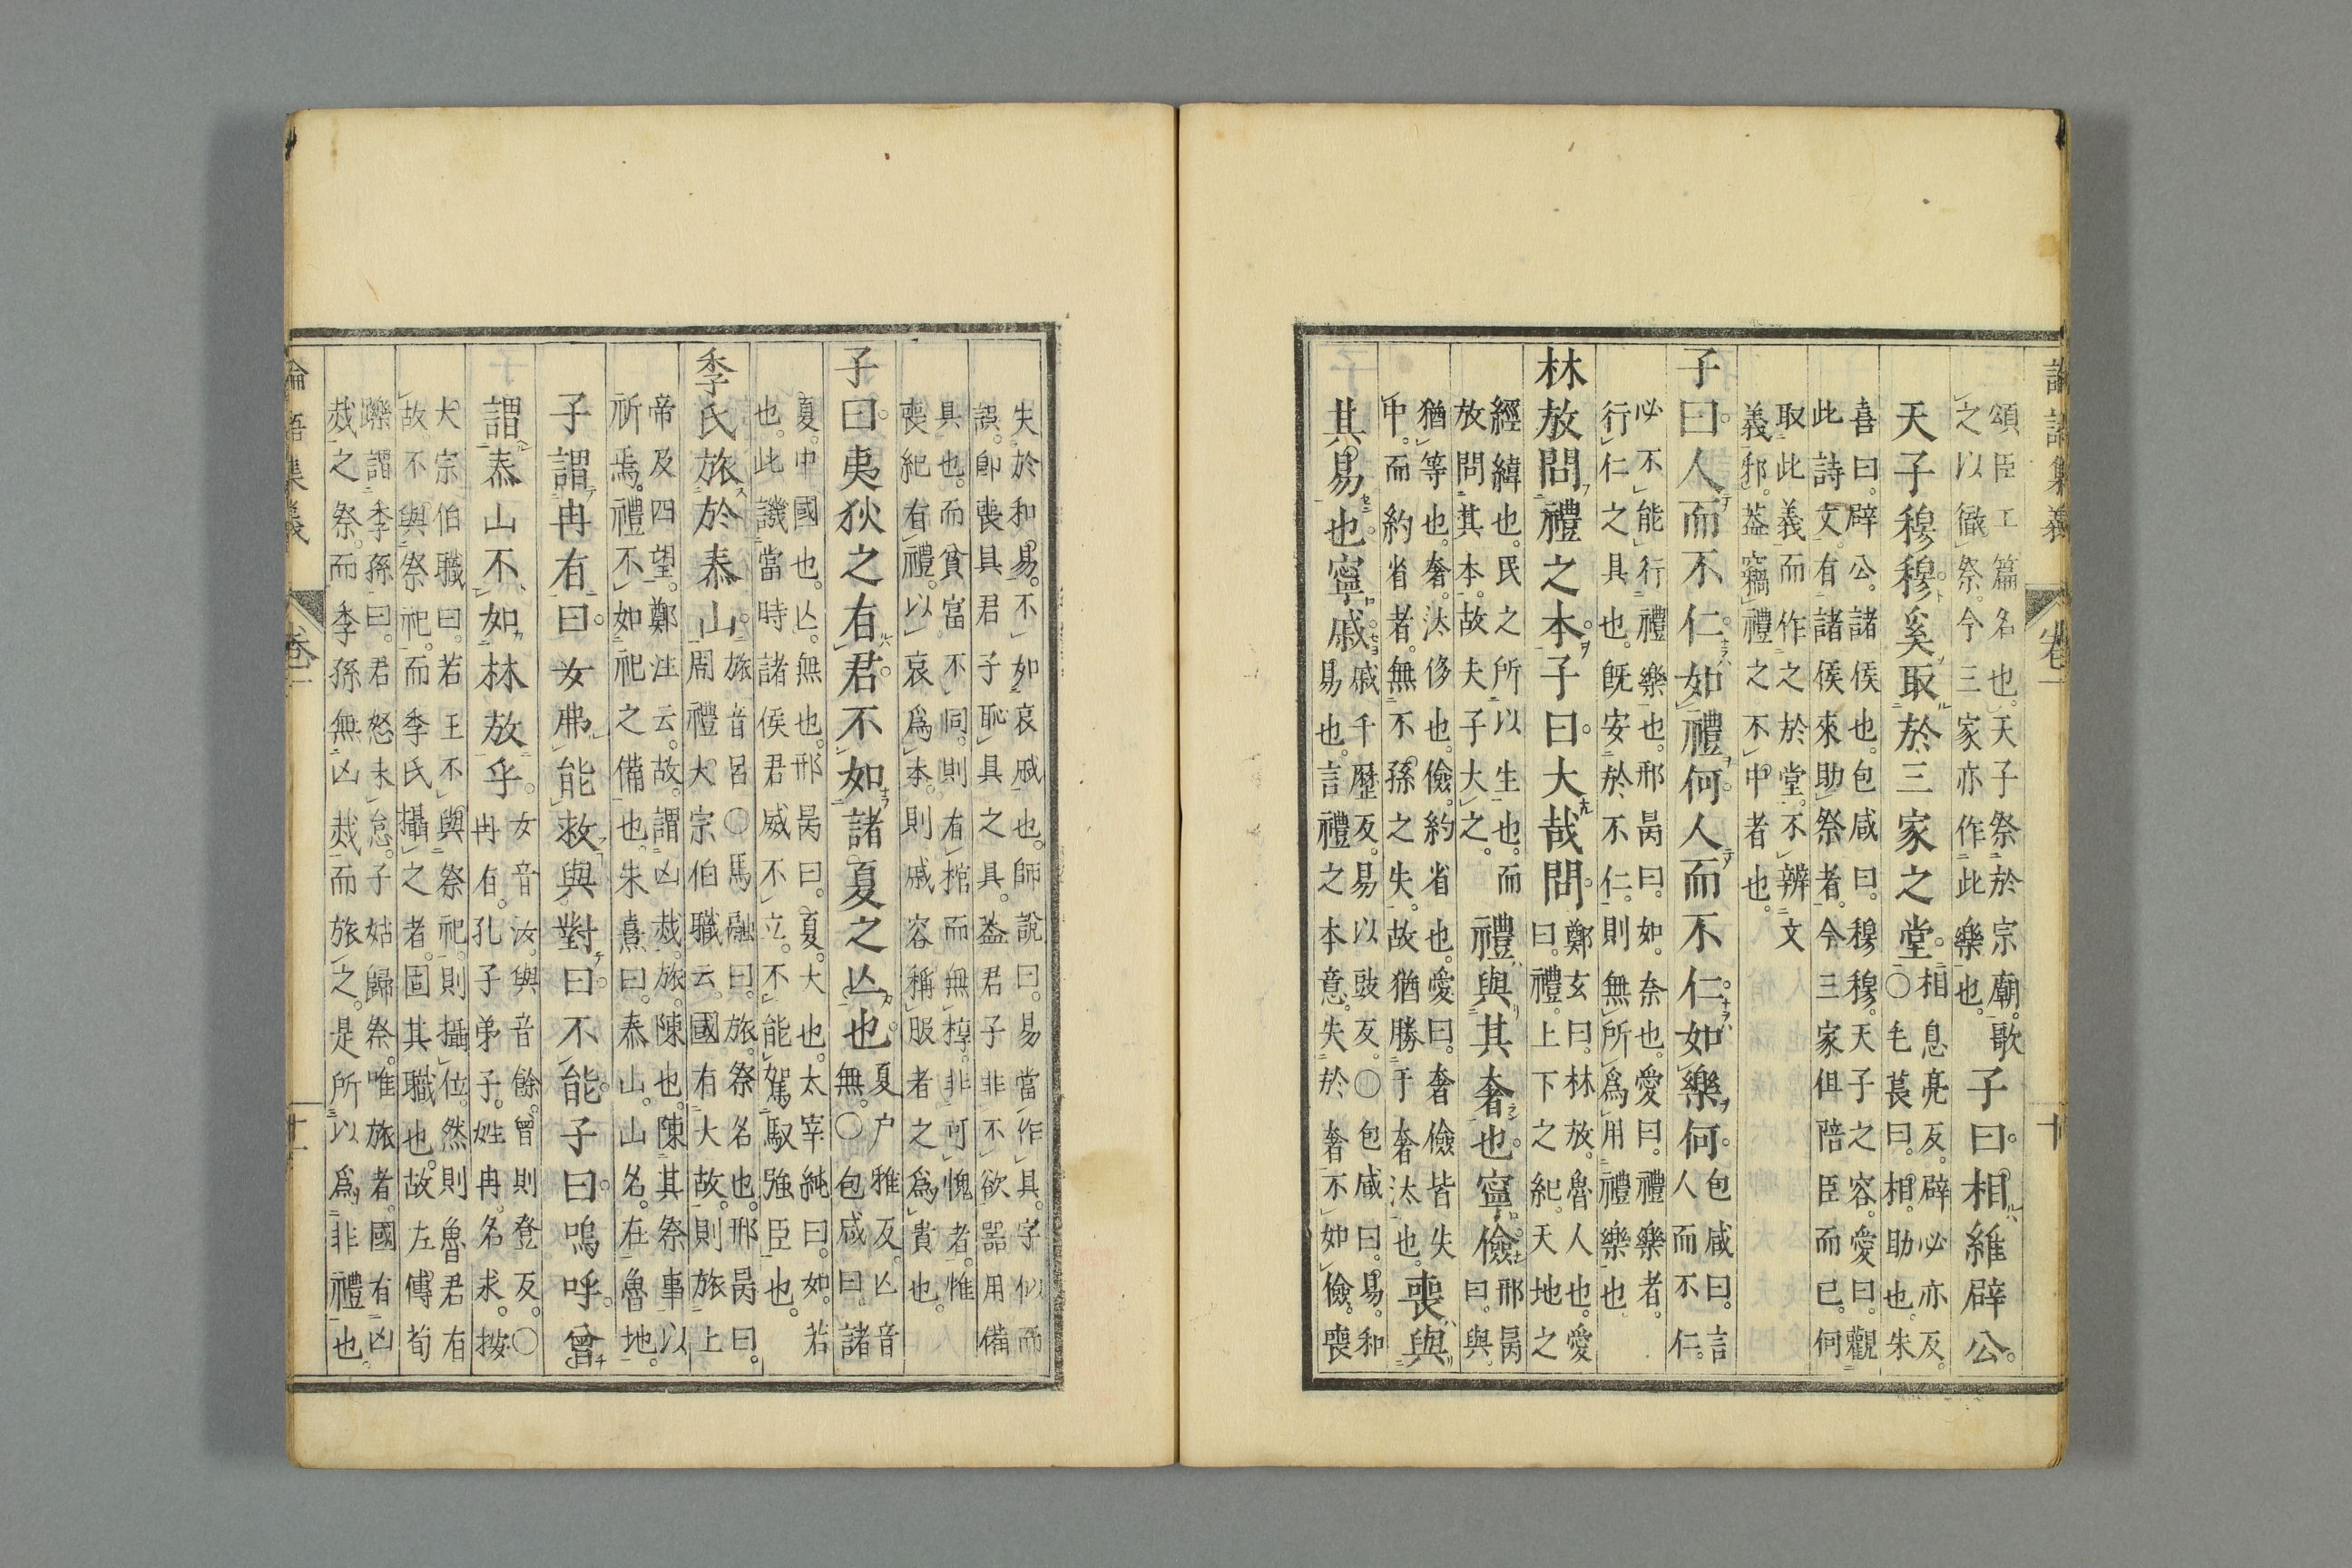 論語集義 卷一 十
頌臣工篇名也。天子祭於宗廟。歌
之以徹祭。今三家亦作此樂也。
子曰。相維辟公。
天子穆穆。奚取於三家之堂。
相息亮反。辟必亦反。
○毛萇曰。相。助也。朱
喜曰。辟公。諸侯也。包咸曰。穆穆。天子之容。愛曰。觀
此詩文。有諸侯來助祭者。今三家但陪臣而已。何
取此義而作之於堂。不辨文
義邪。蓋竊禮之不中者也。
子曰。人而不仁。如禮何。人而不仁。如樂何。
包咸曰。言
人而不仁。
必不能行禮樂也。邢昺曰。如。奈也。愛曰。禮樂者。
行仁之具也。既安於不仁。則無所爲用禮樂也。
林放問禮之本。子曰。大哉問。
鄭玄曰。林放。魯人也。愛
曰。禮。上下之紀。天地之
經緯也。民之所以生也。而
放問其本。故夫子大之。
禮與其奢也。寧儉。
邢昺
曰。與
猶等也。奢。汰侈也。儉。約省也。愛曰。奢儉皆失
中。而約省者。無不孫之失。故猶勝于奢汰也。
喪與
其易也。寧戚。
戚千歷反。易以豉反。○包咸曰。易。和
易也。言禮之本意。失於奢不如儉。喪
失於和易。不如哀戚也。師説曰。易當作具。字似而
誤。卽喪具君子恥具之具。蓋君子非不欲器用備
具也。而貧富不同。則有棺而無椁。非可愧者。惟
喪紀有禮。以哀爲本。則戚容稱服者之爲貴也。
子曰。夷狄之有君。不如諸夏之亾也。
夏户雅反。亾音
無。○包咸曰。諸
夏。中國也。亾。無也。邢昺曰。夏。大也。太宰純曰。如。若
也。此譏當時諸侯君威不立。不能駕馭強臣也。
季氏旅於泰山。
旅音呂○馬融曰。旅。祭名也。邢昺曰。
周禮大宗伯職云。國有大故。則旅上
帝及四望。鄭注云。故。謂凶烖。旅。陳也。陳其祭事以
祈焉。禮不如祀之備也。朱熹曰。泰山。山名。在魯地。
子謂冉有曰。女弗能救與。對曰。不能。子曰。嗚呼。曾
謂泰山不如林放乎。
女音汝。與音餘。曾則登反。○
冉有。孔子弟子。姓冉。名求。按
大宗伯職曰。若王不與祭祀。則攝位。然則魯君有
故。不與祭祀。而季氏攝之者。固其職也。故左傳荀
躒謂季孫曰。君怒未怠。子姑歸祭。唯旅者。國有凶
烖之祭。而季孫無凶烖而旅之。是所以爲非禮也。
論語集義 卷一 十一